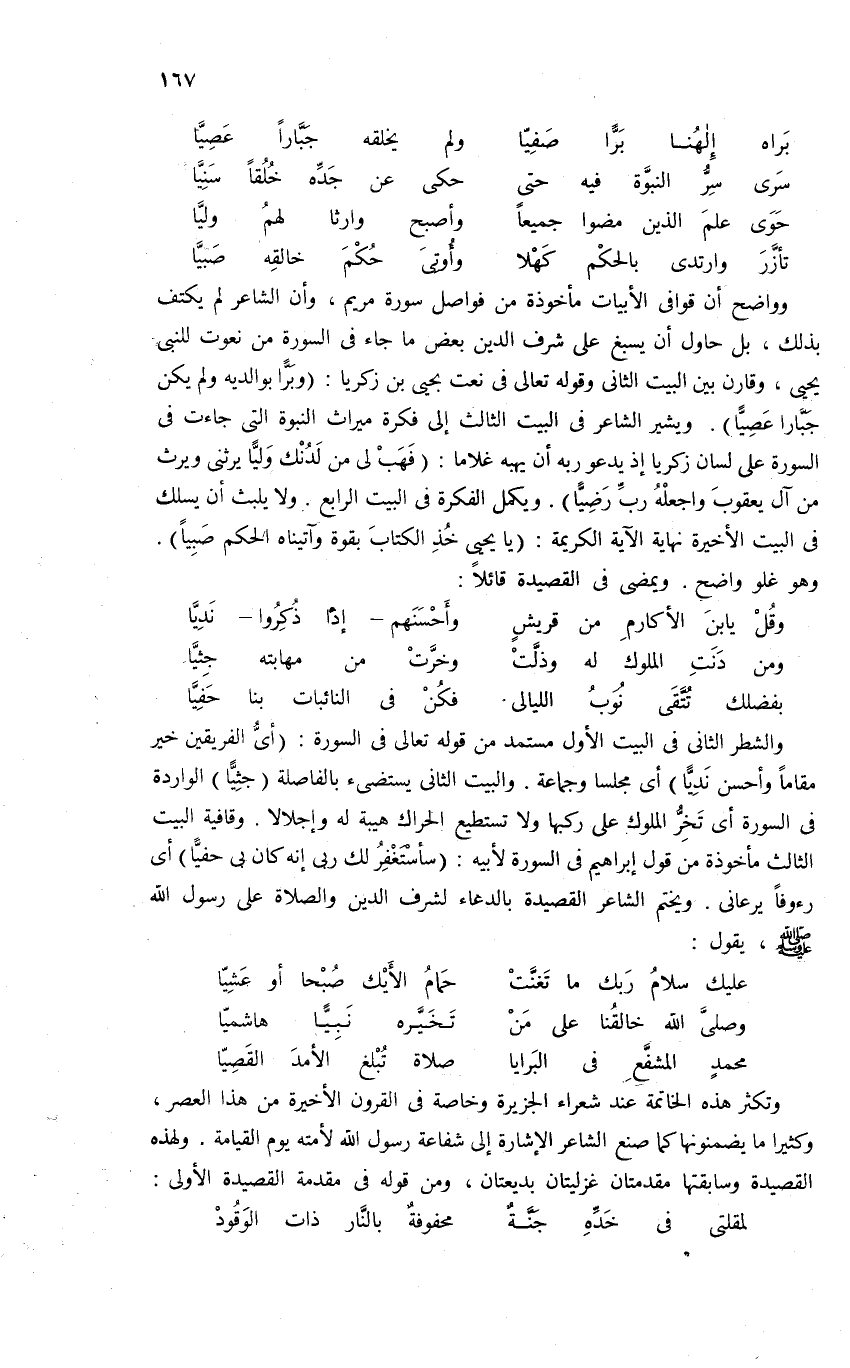 ١٦٧
بَراه إِلٰهُنـا بَرًّا صَفِيًّا ولم يخلقه جَبَّاراً عَصِيًّا
سَرَى سِرُّ النبوَّة فيه حتى حكى عن جَدِّه خُلُقاً سَنِيًّا
حَوَى علمَ الذين مضوا جميعاً وأصبح وارثا لهمُ وليًّا
تأزَّرَ وارتدى بالحكْم كَهْلا وأُوتِىَ حُكْمَ خالقِه صَبيًّا
وواضح أن قوافى الأبيات مأخوذة من فواصل سورة مريم ، وأن الشاعر لم يكتف
بذلك ، بل حاول أن يسبغ على شرف الدين بعض ما جاء فى السورة من نعوت للنبى
يحيى ، وقارن بين البيت الثانى وقوله تعالى فى نعت يحيى بن زكريا : (وبَرًّا بوالديه ولم يكن
جَبَّارا عَصِيًّا) . ويشير الشاعر فى البيت الثالث إلى فكرة ميراث النبوة التى جاءت فى
السورة على لسان زكريا إذ يدعو ربه أن يهبه غلاما : (فَهَبْ لى من لَدُنْك وَليًّا يرثنى ويرث
من آل يعقوبَ واجعلْهُ ربِّ رَضِيًّا) . ويكمل الفكرة فى البيت الرابع . ولا يلبث أن يسلك
فى البيت الأخيرة نهاية الآية الكريمة : (يا يحيى خُذِ الكتابَ بقوة وآتيناه الحكم صَبِياً) .
وهو غلو واضح . ويمضى فى القصيدة قائلاً :
وقُلْ يابنَ الأكارمِ من قريشٍ وأَحْسَنَهم – إذا ذُكِرُوا – نَدِيًّا
ومن دَنَتِ الملوك له وذلَّتْ وخرَّتْ من مهابته جِثِيًّا
بفضلك تُتَّقَى نُوَبُ الليالى فكُنْ فى النائبات بنا حَفِيًّا
والشطر الثانى فى البيت الأول مستمد من قوله تعالى فى السورة : (أىُّ الفريقين خير
مقاماً وأحسن نَدِيًّا) أى مجلسا وجماعة . والبيت الثانى يستضىء بالفاصلة (جثِيًّا) الواردة
فى السورة أى تَخِرُّ الملوك على ركبها ولا تستطيع الحراك هيبة له وإجلالا . وقافية البيت
الثالث مأخوذة من قول إبراهيم فى السورة لأبيه : (سأسْتَغْفِرُ لك ربى إنه كان بى حفيًّا) أى
رءوفاً يرعانى . ويختم الشاعر القصيدة بالدعاء لشرف الدين والصلاة على رسول الله
ﷺ ، يقول :
عليك سلامُ رَبك ما تَغنَّتْ حَمامُ الأَيْك صُبْحا أو عَشِيًّا
وصلىَّ الله خالقُنا على مَنْ تَـخَيَّـره نَـبِيًّـا هاشميًّا
محمدٍ المشفَّعِ فى البَرايا صلاة تُبْلغ الأمدَ القَصِيًّا
وتكثر هذه الخاتمة عند شعراء الجزيرة وخاصة فى القرون الأخيرة من هذا العصر ،
وكثيرا ما يضمنونها كما صنع الشاعر الإشارة إلى شفاعة رسول الله لأمته يوم القيامة . ولهذه
القصيدة وسابقتها مقدمتان غزليتان بديعتان ، ومن قوله فى مقدمة القصيدة الأولى :
لمقلتى فى خَدِّهِ جَنَّـةٌ محفوفةٌ بالنَّار ذات الوَقُودْ